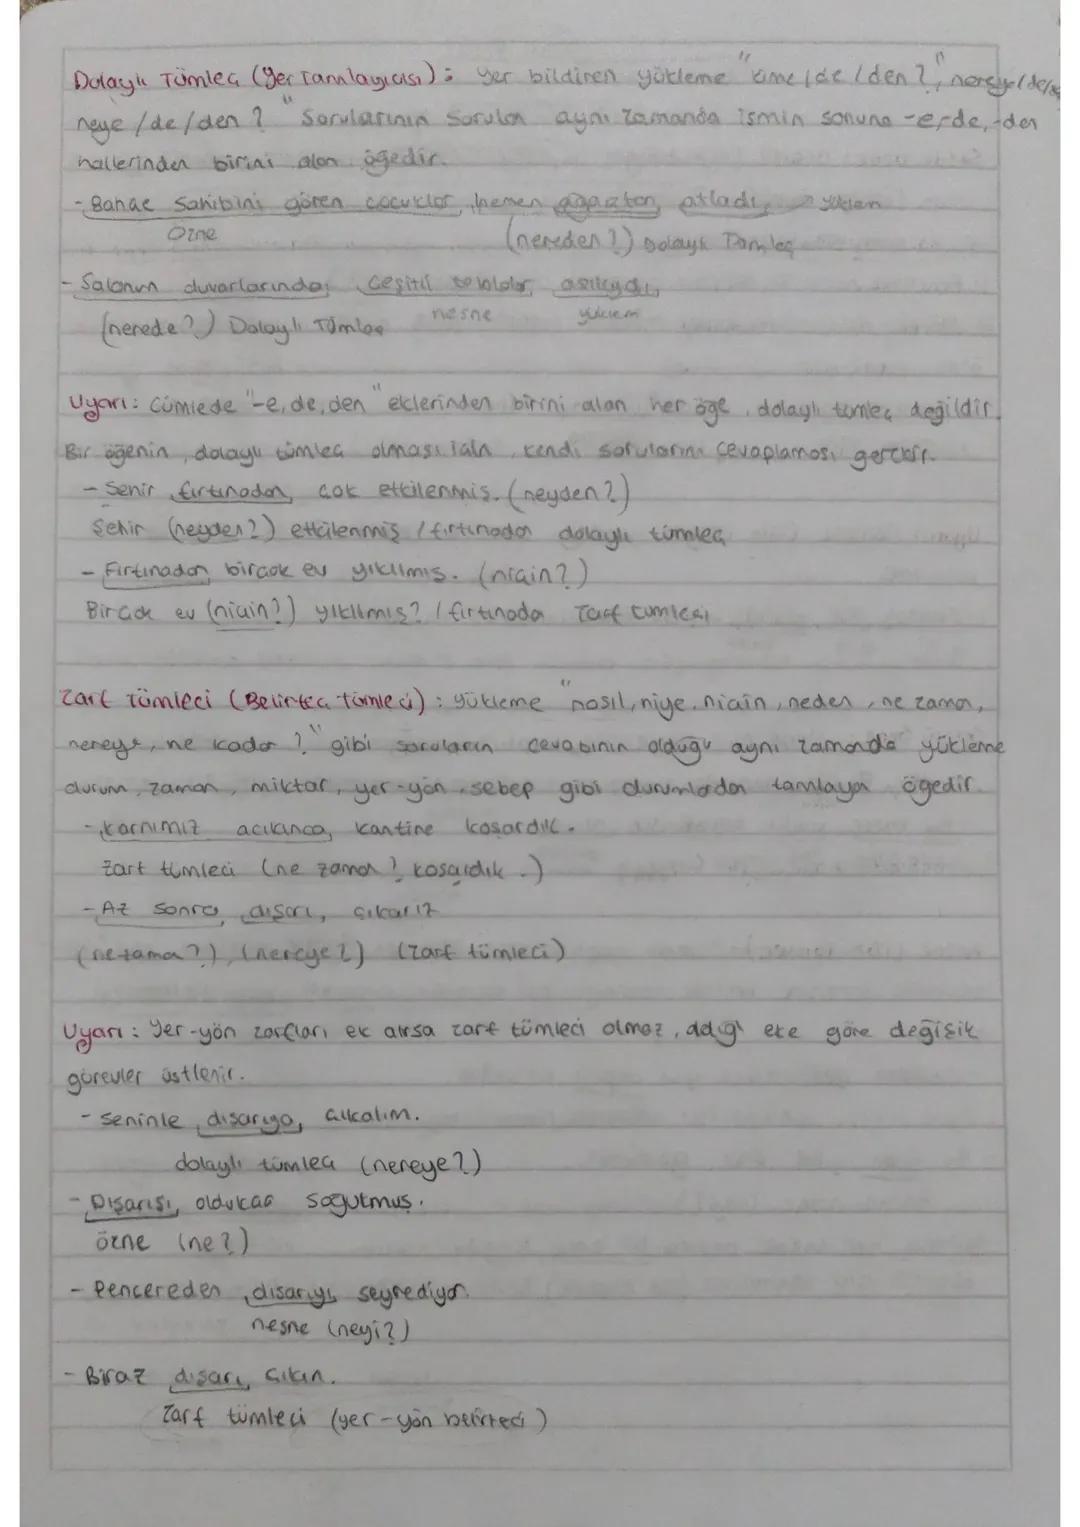 Dolaylı Tümleç (Yer Tamlayıcısı): Yer bildiren yükleme "kime/de/den?, nereye/de/den
neye/de/den?" Sorularının Sorulan aynı zamanda ismin sonuna -e,-de,-den
hallerinden birini alan ögedir.
- Bahçe sahibini gören çocuklar, hemen ağaçtan atladı. → yüklem
Özne (nereden?) Dolaylı Tümleç
- Salonun duvarlarında çeşitli tablolar asılıydı.
(nerede?) Dolaylı Tümleç nesne yüklem
Uyarı: Cümlede "-e, de, den" eklerinden birini alan her öge, dolaylı tümleç değildir.
Bir öğenin, dolaylı tümleç olması için, kendi sorularını cevaplaması gerekir.
- Şehir fırtınadan çok etkilenmiş. (neyden?)
Şehir (neyden?) etkilenmiş / fırtınadan dolaylı tümleç
- Fırtınadan birçok ev yıkılmış. (niçin?)
Birçok ev (niçin?) yıkılmış? / fırtınada Zarf tümleci
Zarf Tümleci (Belirteç tümleci): yükleme "nasıl, niye, niçin, neden, ne zaman,
nereye, ne kadar?" gibi soruların cevabının olduğu aynı zamanda yükleme
durum, zaman, miktar, yer-yön, sebep gibi durumlardan tamlayan ögedir.
- Karnımız acıkınca, kantine koşardık.
Zarf tümleci (ne zaman? koşardık.)
- Az sonra dışarı, çıkarız
(ne zama?), (nereye?) (zarf tümleci)
Uyarı: Yer-yön zarfları ek alırsa zarf tümleci olmaz, aldığı eke göre değişik
görevler üstlenir.
- Seninle dışarıya çıkalım.
dolaylı tümleç (nereye?)
- Dışarısı, oldukça soğutmuş.
özne (ne?)
- Pencereden dışarıyı seyrediyor.
nesne (neyi?)
- Biraz dışarı çıkın.
Zarf tümleci (yer-yön belirteci)